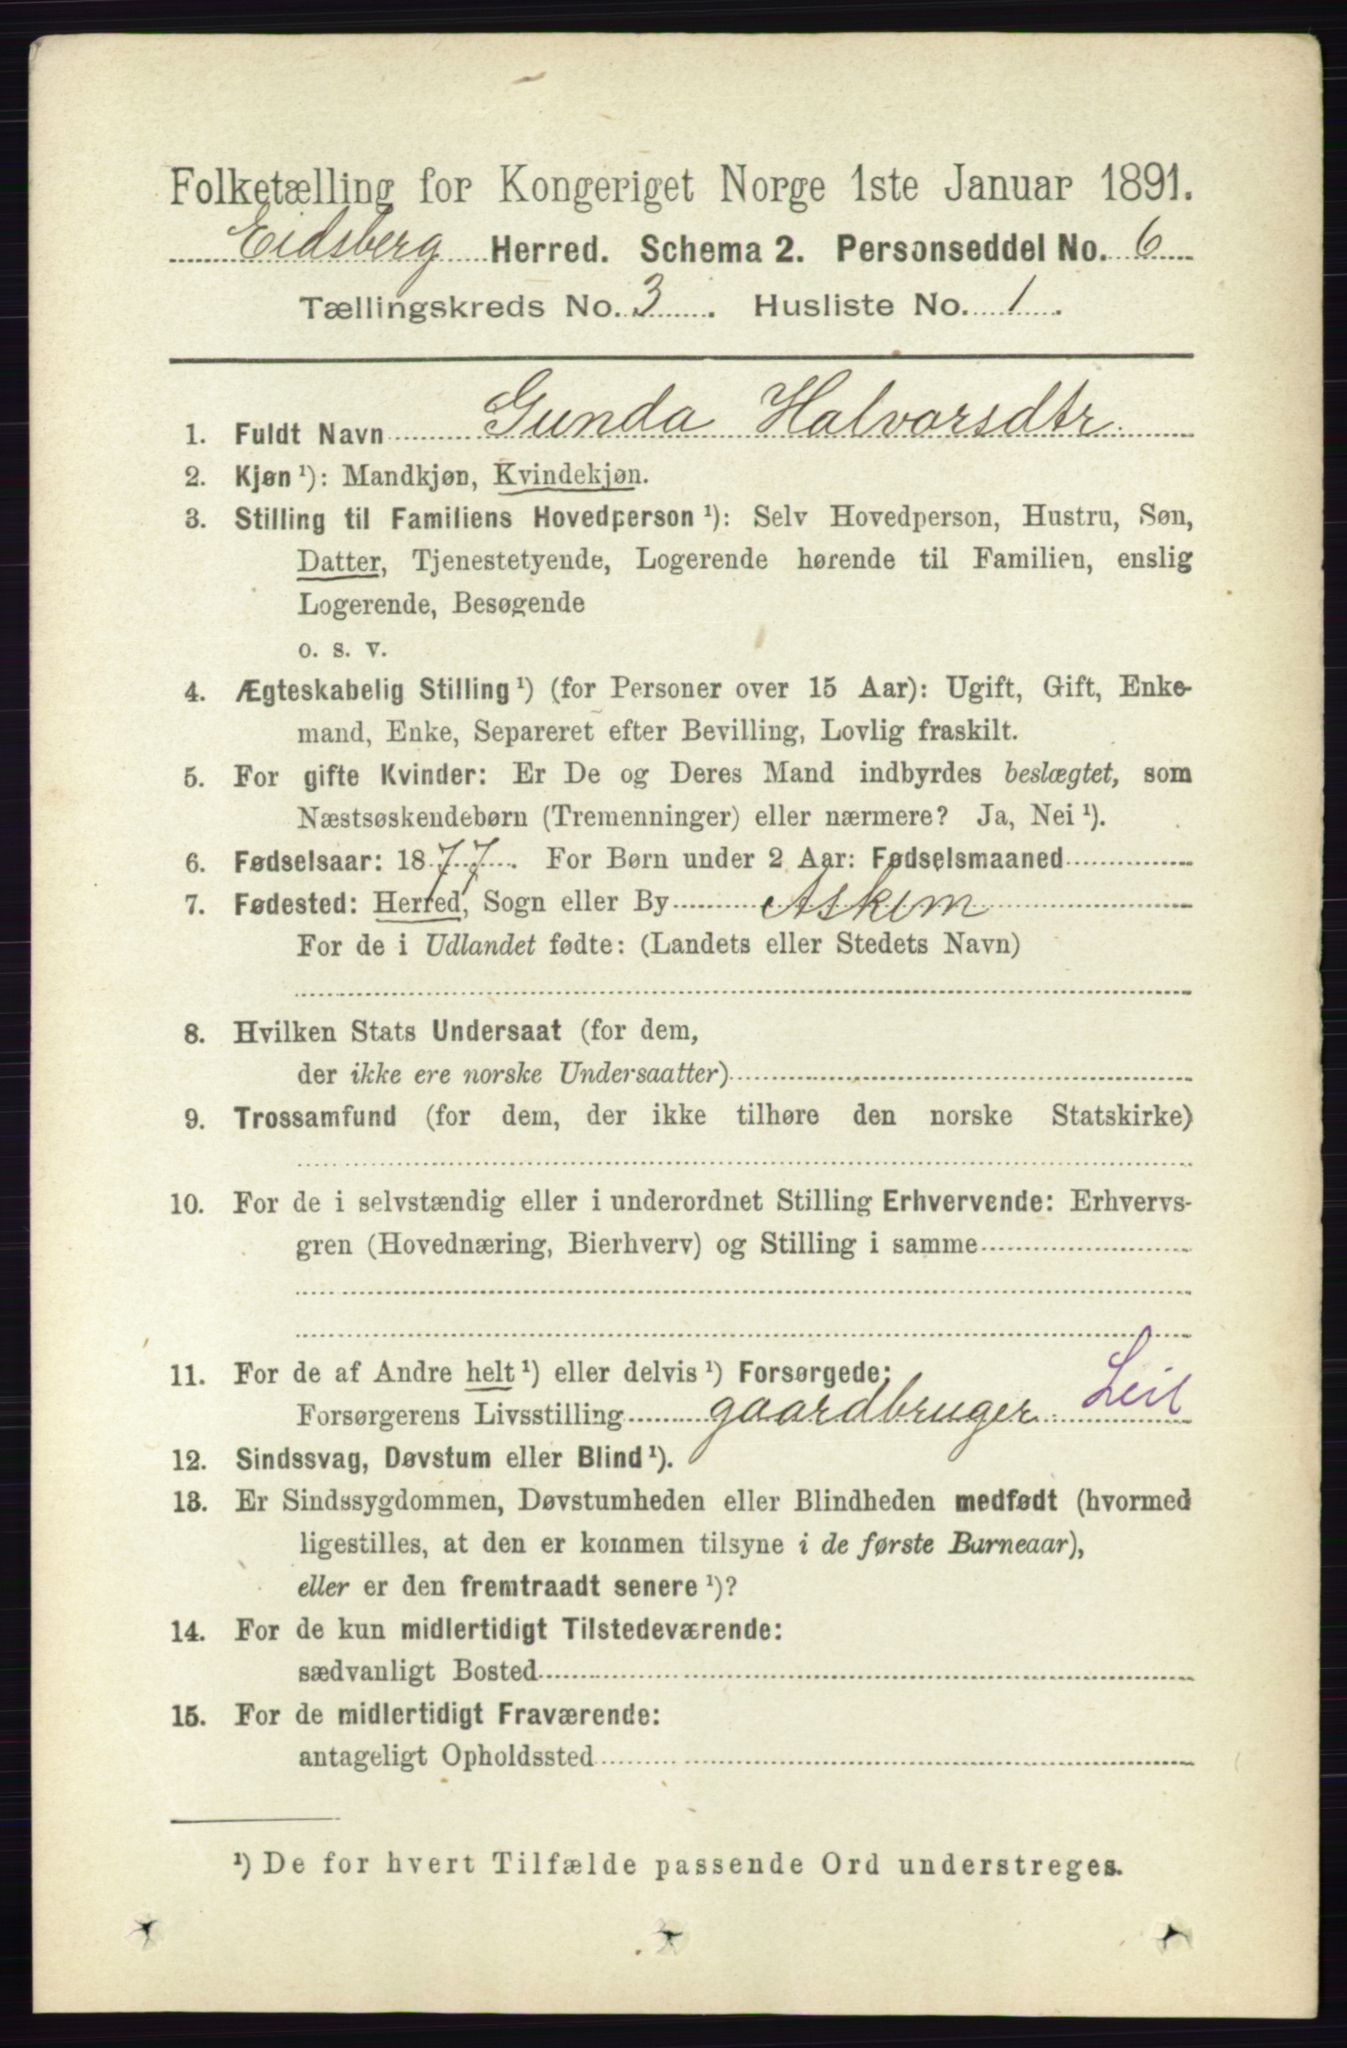 Folketælling for Kongeriget Norge 1ste Januar 1891.
Eidsberg Herred. Schema 2. Personseddel No. 6
Tællingskreds No. 3. Husliste No. 1.
1. Fuldt Navn Gunda Halvorsdtr.
2. Kjøn ¹): Mandkjøn, Kvindekjøn.
3. Stilling til Familiens Hovedperson ¹): Selv Hovedperson, Hustru, Søn,
Datter, Tjenestetyende, Logerende hørende til Familien, enslig
Logerende, Besøgende
o. s. v.
4. Ægteskabelig Stilling ¹) (for Personer over 15 Aar): Ugift, Gift, Enke-
mand, Enke, Separeret efter Bevilling, Lovlig fraskilt.
5. For gifte Kvinder: Er De og Deres Mand indbyrdes beslægtet, som
Næstsøskendebørn (Tremenninger) eller nærmere? Ja, Nei ¹).
6. Fødselsaar: 1877. For Børn under 2 Aar: Fødselsmaaned
7. Fødested: Herred, Sogn eller By Askim
For de i Udlandet fødte: (Landets eller Stedets Navn)
8. Hvilken Stats Undersaat (for dem,
der ikke ere norske Undersaatter)
9. Trossamfund (for dem, der ikke tilhøre den norske Statskirke)
10. For de i selvstændig eller i underordnet Stilling Erhvervende: Erhvervs-
gren (Hovednæring, Bierhverv) og Stilling i samme
11. For de af Andre helt ¹) eller delvis ¹) Forsørgede:
Forsørgerens Livsstilling gaardbruger Leil
12. Sindssvag, Døvstum eller Blind ¹).
13. Er Sindssygdommen, Døvstumheden eller Blindheden medfødt (hvormed
ligestilles, at den er kommen tilsyne i de første Barneaar),
eller er den fremtraadt senere ¹)?
14. For de kun midlertidigt Tilstedeværende:
sædvanligt Bosted
15. For de midlertidigt Fraværende:
antageligt Opholdssted
¹) De for hvert Tilfælde passende Ord understreges.